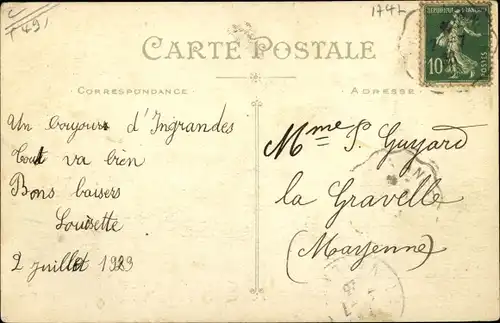 T 491
1742
CARTE POSTALE
CORRESPONDANCE
ADRESSE
10
POSTES
Un boujour d'Ingrandes
Tout va bien
Bons baisers
Louisette
2 juillet 1923
Mme P. Guyard
la Gravelle
(Mayenne)